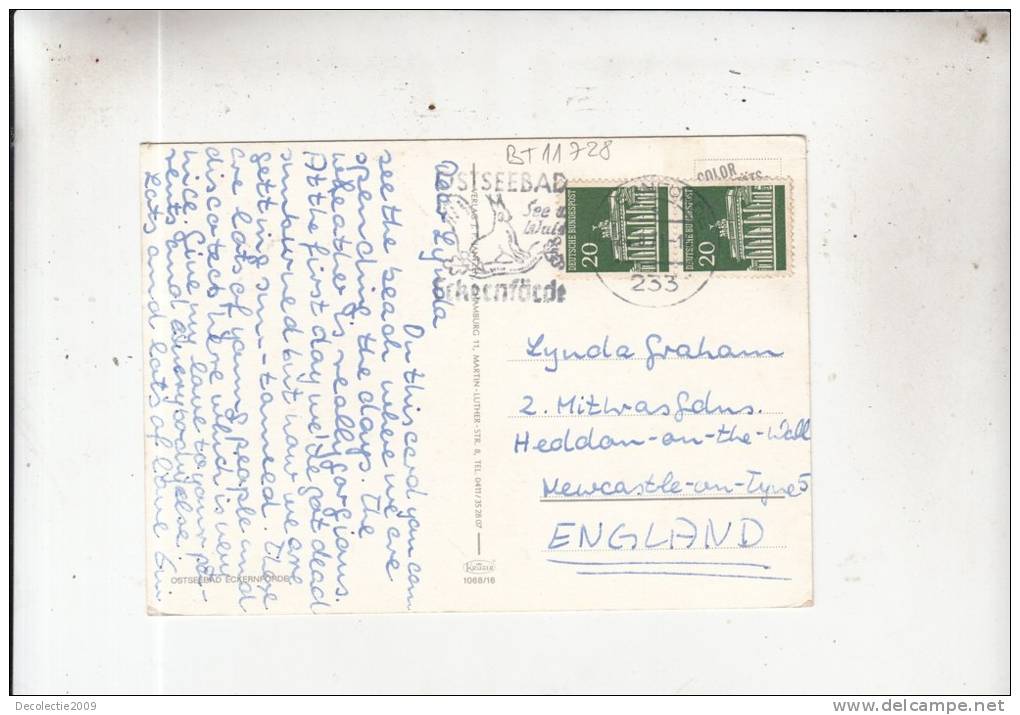 BT 11728
OSTSEEBAD
See
Eckernförde
COLOR
DEUTSCHE BUNDESPOST
20
DEUTSCHE BUNDESPOST
20
233
Dear Lynda
On this card you can
see the beach where we are
spending the days. The
wheater is really gorgious.
At the first day we'de got dead
sunburned but now we are
getting sun-tanned. There
are lots of young people and
discotecs here which is very
nice. Give my love to your pa-
rents and everybody else.
Lots and lots of love
HAMBURG 11, MARTIN-LUTHER-STR. 8, TEL. 0411/35 28 07
KRÜGER
1068/16
OSTSEEBAD ECKERNFÖRDE
Lynda Graham
2. Mithras Gdns.
Heddon-on-the-Wall
Newcastle-on-Tyne 5
ENGLAND
Decolectie2009
www.delcampe.net